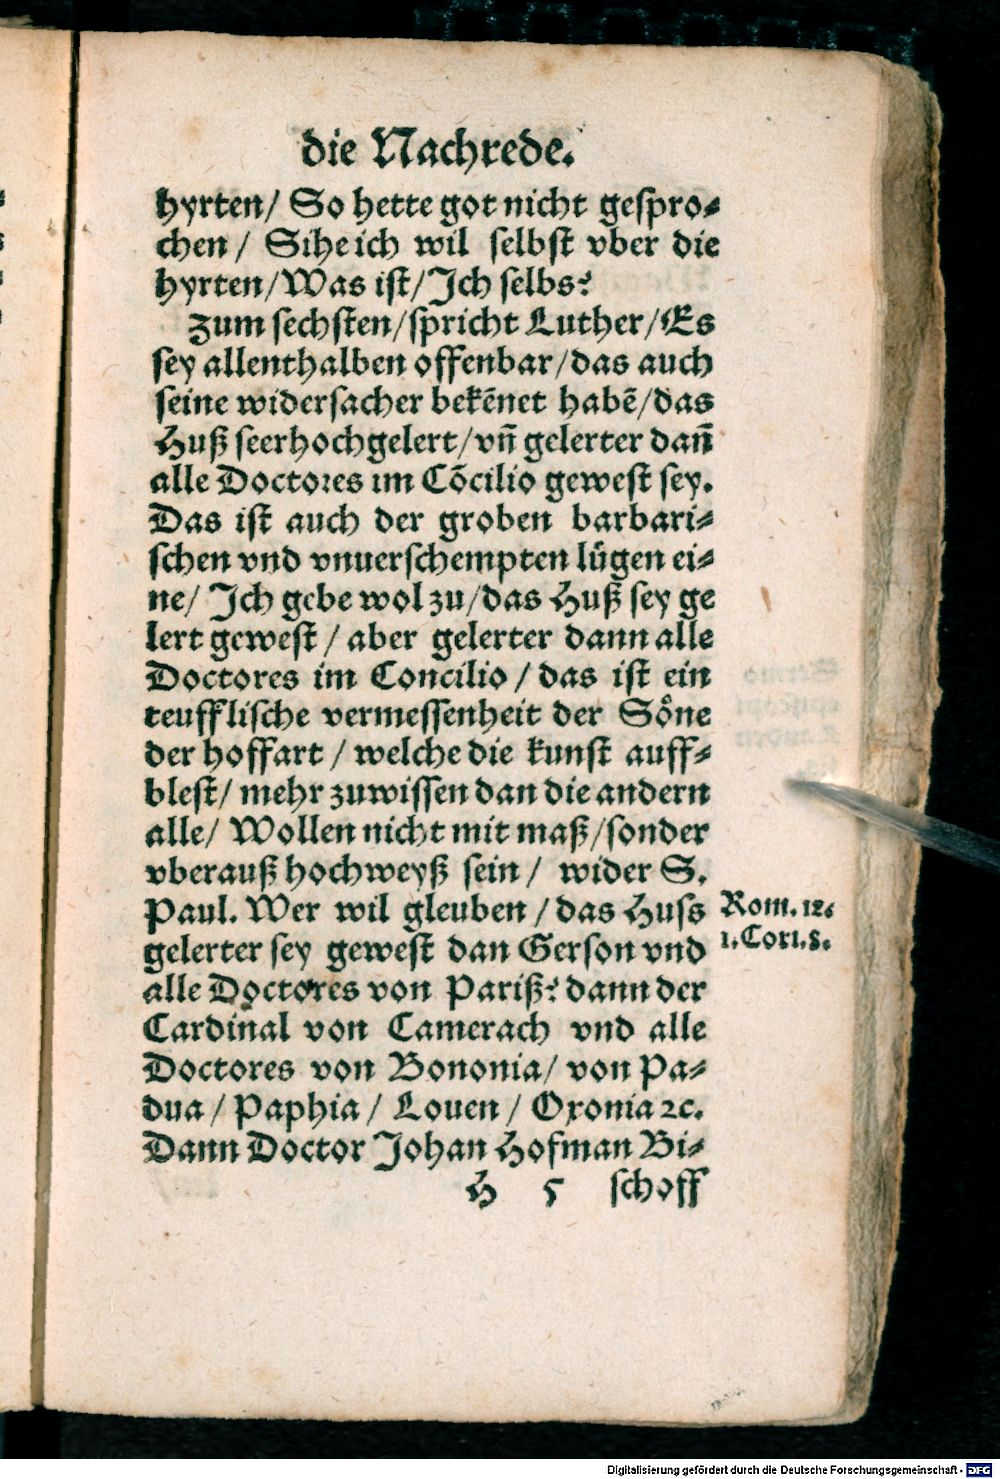 die Nachrede.
hyrten/ So hette got nicht gespro⸗
chen / Sihe ich wil selbst vber die
hyrten/Was ist/Ich selbs?
Zum sechsten/spricht Luther/Es
sey allenthalben offenbar/das auch
seine widersacher bekēnet habē/das
Huß seer hochgelert/vn̄ gelerter dan̄
alle Doctores im Cōcilio gewest sey.
Das ist auch der groben barbari⸗
schen vnd vnuerschempten lügen ei⸗
ne/ Ich gebe wol zu/das Huß sey ge
lert gewest / aber gelerter dann alle
Doctores im Concilio / das ist ein
teufflische vermessenheit der Söne
der hoffart / welche die kunst auff⸗
blest/ mehr zuwissen dan die andern
alle/ Wollen nicht mit maß/sonder
vberauß hochweyß sein / wider S.
Paul. Wer wil gleuben / das Huss
Rom. 12.
gelerter sey gewest dan Gerson vnd
1.Cori.8.
alle Doctores von Pariß? dann der
Cardinal von Camerach vnd alle
Doctores von Bononia/ von Pa⸗
dua / Paphia / Louen / Oxonia ꝛc.
Dann Doctor Johan Hofman Bi⸗
H 5 schoff
Digitalisierung gefördert durch die Deutsche Forschungsgemeinschaft - DFG